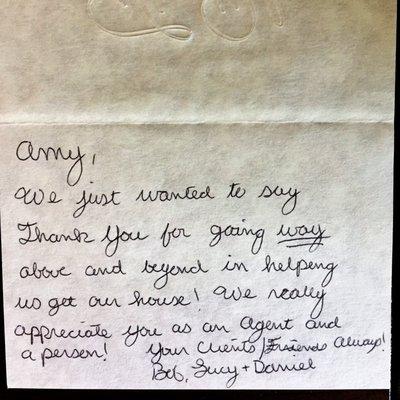 Amy,
We just wanted to say
Thank You for going way
above and beyond in helpeng
us get our house! We really
appreciate you as an Agent and
a person! Your Clients/Friends Always!
Bob, Lucy + Daniel